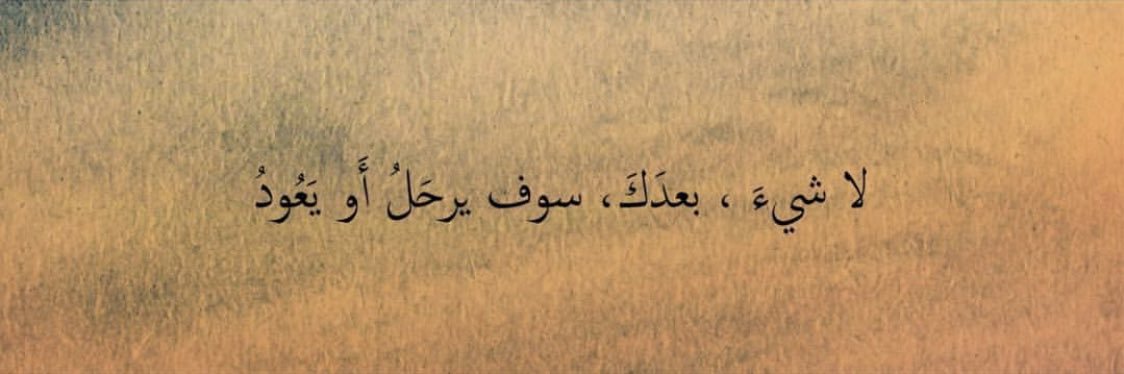 لا شيءَ ، بعدَكَ، سوف يرحَلُ أَو يَعُودُ